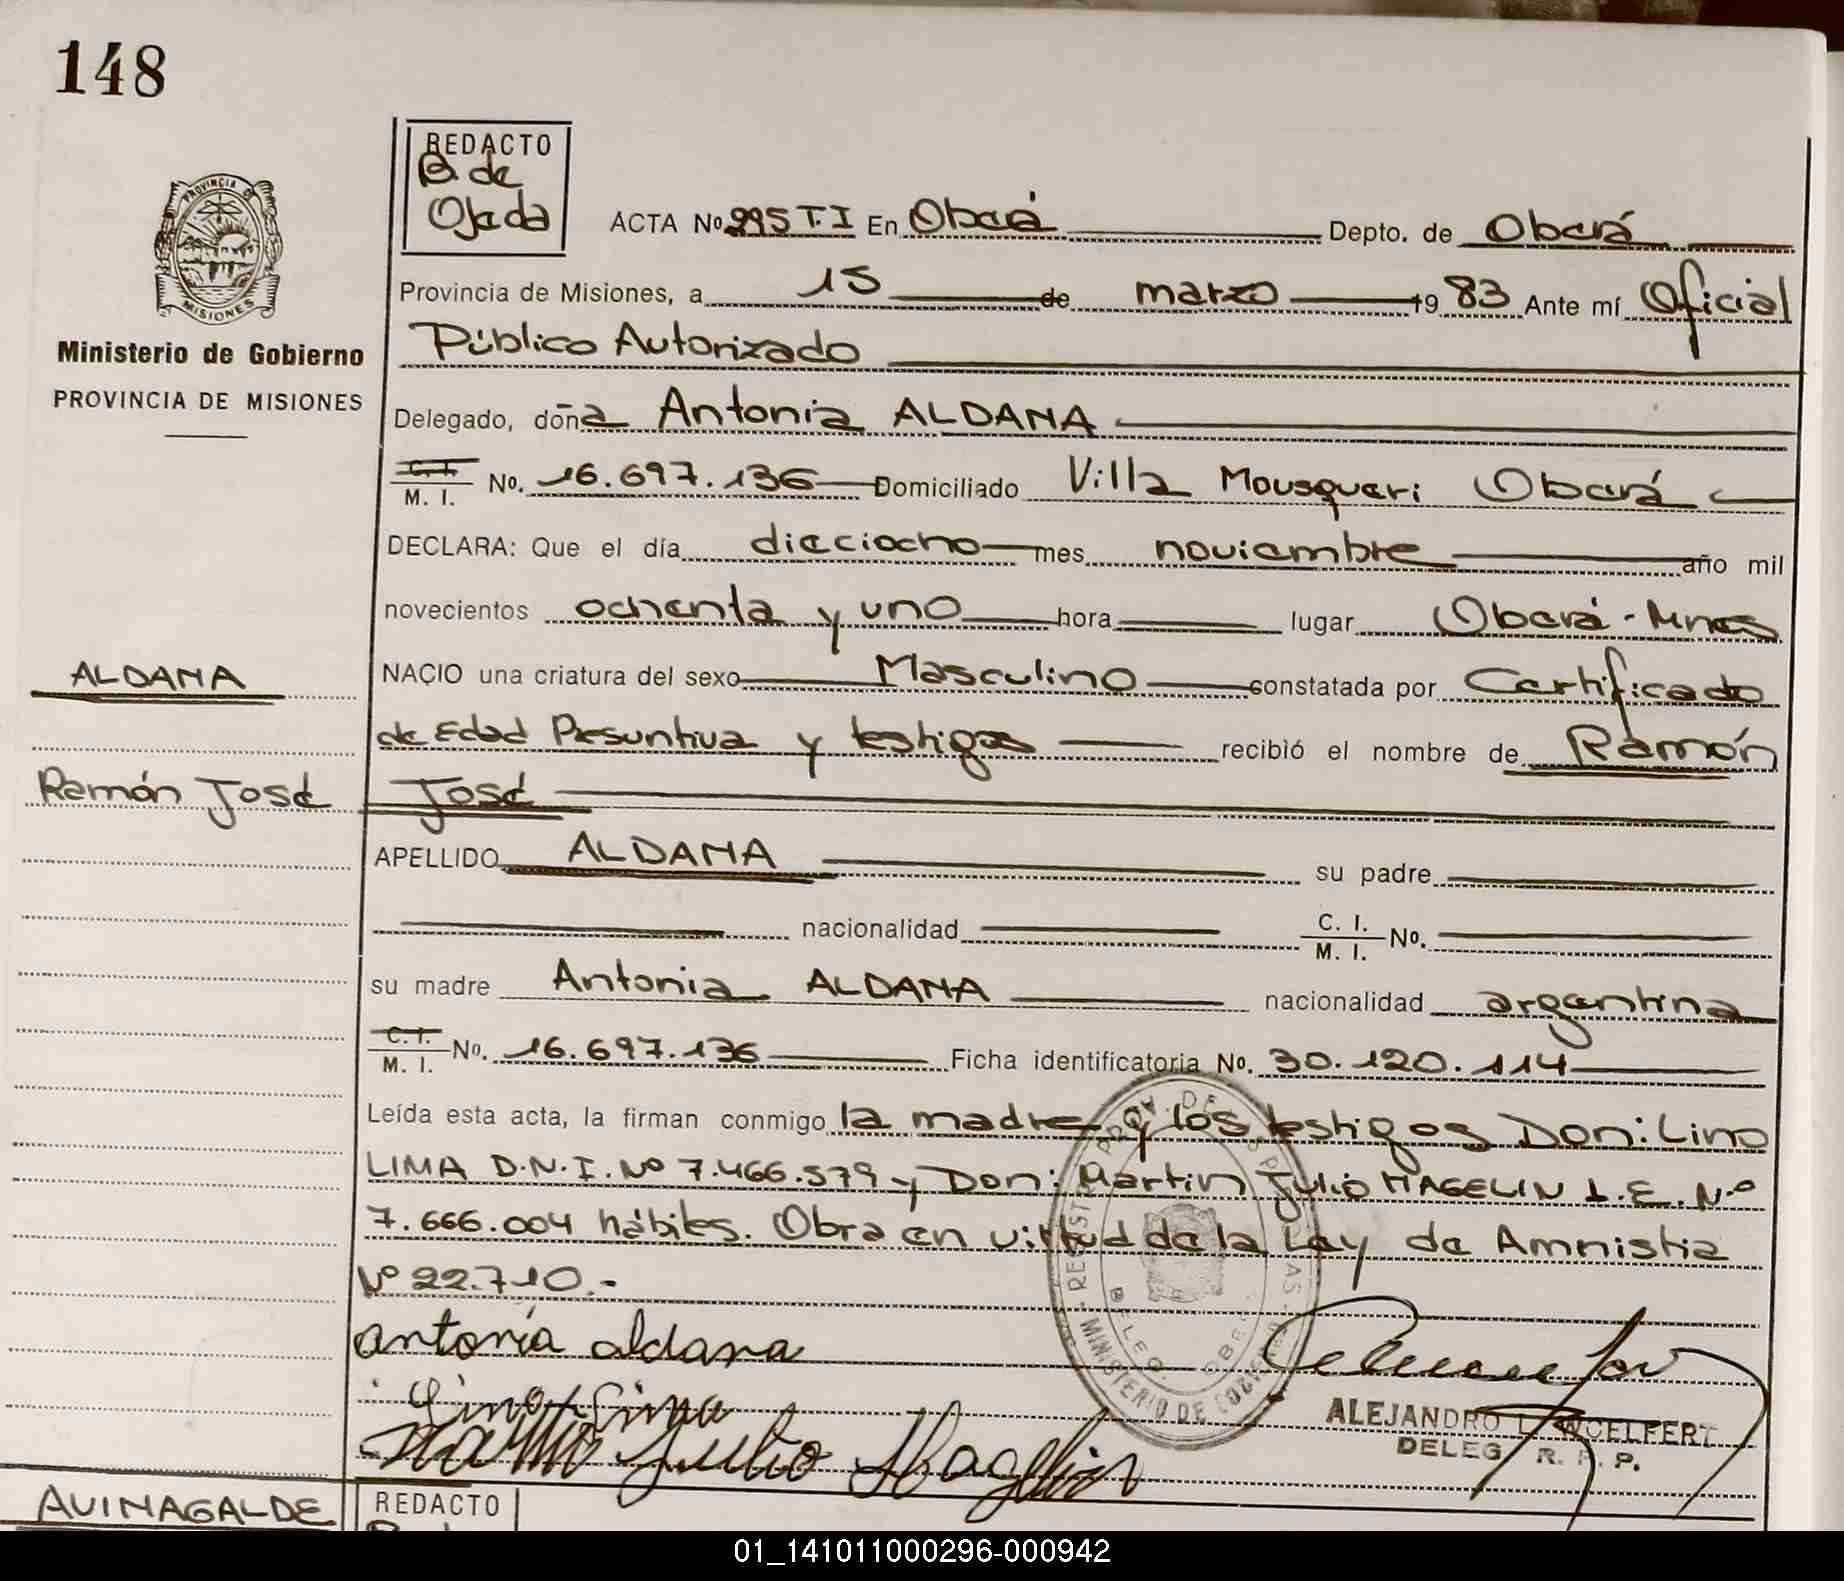 148
REDACTO
B. de
Ojeda
ACTA No 295 T.I En Oberá Depto. de Oberá
PROVINCIA DE MISIONES
Provincia de Misiones, a 15 de marzo 1983 Ante mí Oficial
Ministerio de Gobierno
PROVINCIA DE MISIONES
Público Autorizado
Delegado, doña Antonia ALDANA
C. I. M. I. No. 16.697.136 Domiciliado Villa Mousqueri Oberá
DECLARA: Que el día dieciocho mes noviembre año mil
novecientos ochenta y uno hora lugar Oberá - Mnes
ALDANA
NACIO una criatura del sexo Masculino constatada por Certificado
de Edad Presuntiva y testigos recibió el nombre de Ramón
Ramón José
José
APELLIDO ALDANA su padre
nacionalidad C. I. M. I. No.
su madre Antonia ALDANA nacionalidad argentina
C. I. M. I. No. 16.697.136 Ficha identificatoria No. 30.120.114
Leída esta acta, la firman conmigo la madre y los testigos Don: Lino
LIMA D.N.I. Nº 7.466.579 y Don: Martin Julio HAGELIN L.E. Nº
7.666.004 hábiles. Obra en virtud de la Ley de Amnistia
Nº 22.710.-
antonia aldana
Lino Lima
Martin Julio Hagelin
MINISTERIO DE GOBIERNO
ALEJANDRO
DELEG R. P.
AVINAGALDE
REDACTO
01_141011000296-000942